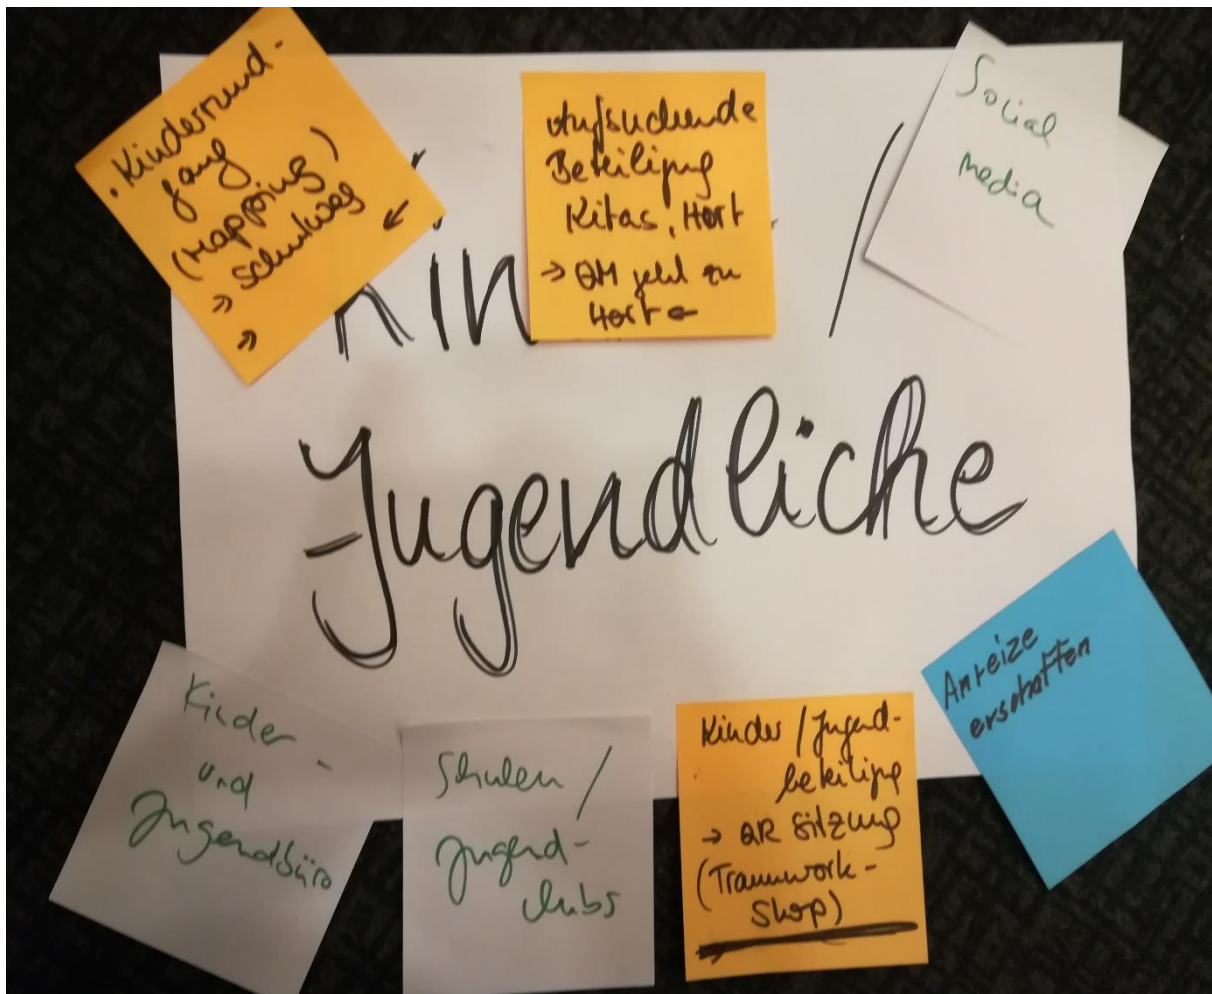 . Kinderrund-
gang
(Mapping)
→ Schulweg
→
Aufsuchende
Beteiligung
Kitas, Hort
→ QM geht zu
Hort ←
Social
media
Kin /
Jugendliche
Kinder -
und
Jugendbüro
Schulen /
Jugend-
clubs
Kinder / Jugend-
beteiligung
→ QR Sitzung
(Traumwork-
shop)
Anreize
erschaffen